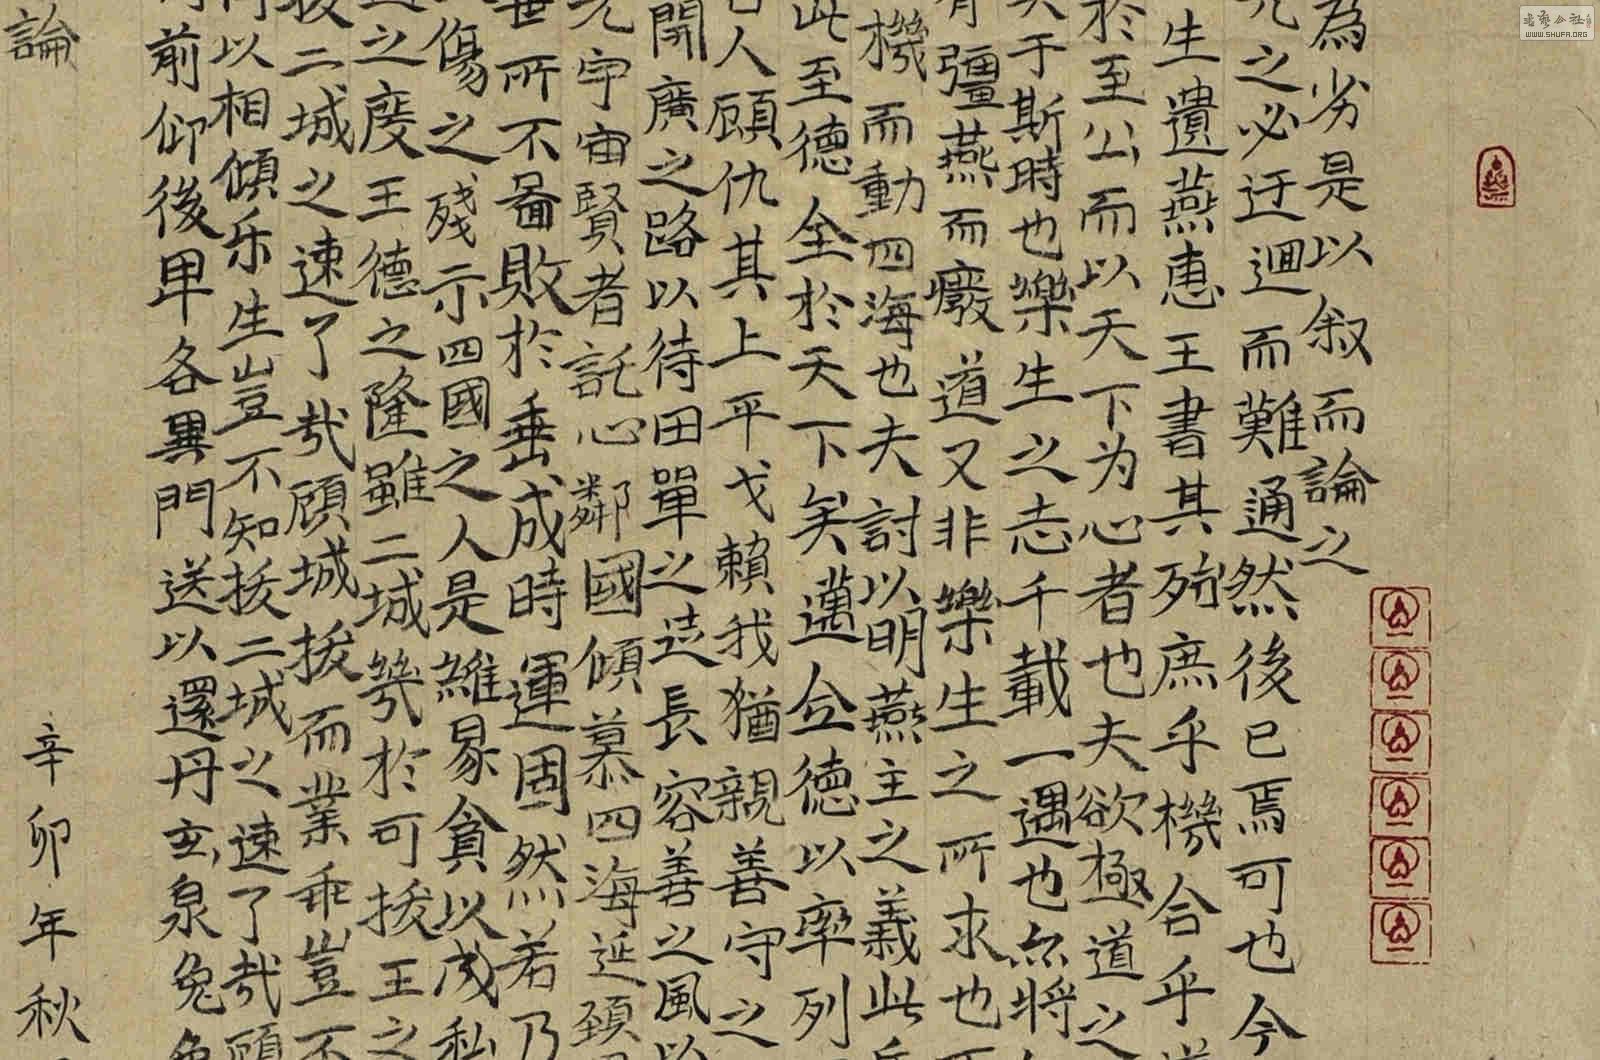 為劣是以叙而論之
之必迂迴而難通然後已焉可也今
生遺燕惠王書其殆庶乎機合乎道
於至公而以天下为心者也夫欲極道之
于斯時也樂生之志千載一遇也亦將
彊燕而廢道又非樂生之所求也
機而動四海也夫討以明燕主之義此
此至德全於天下矣邁全德以率列
人顧仇其上平戈賴我猶親善守之
開廣之路以待田單之徒長容善之風以
宇宙賢者託心鄰國傾慕四海延頸
世所不啚敗於垂成時運固然若乃
傷之殘示四國之人是縱易貪以成私
之廢王德之隆雖二城幾於可拔王之
拔二城之速了哉顧城拔而業乖豈不
以相傾乐生豈不知拔二城之速了哉顧
前仰後甲各異門送以還丹玄泉兔
論
辛卯年秋
WWW.SHUFA.ORG